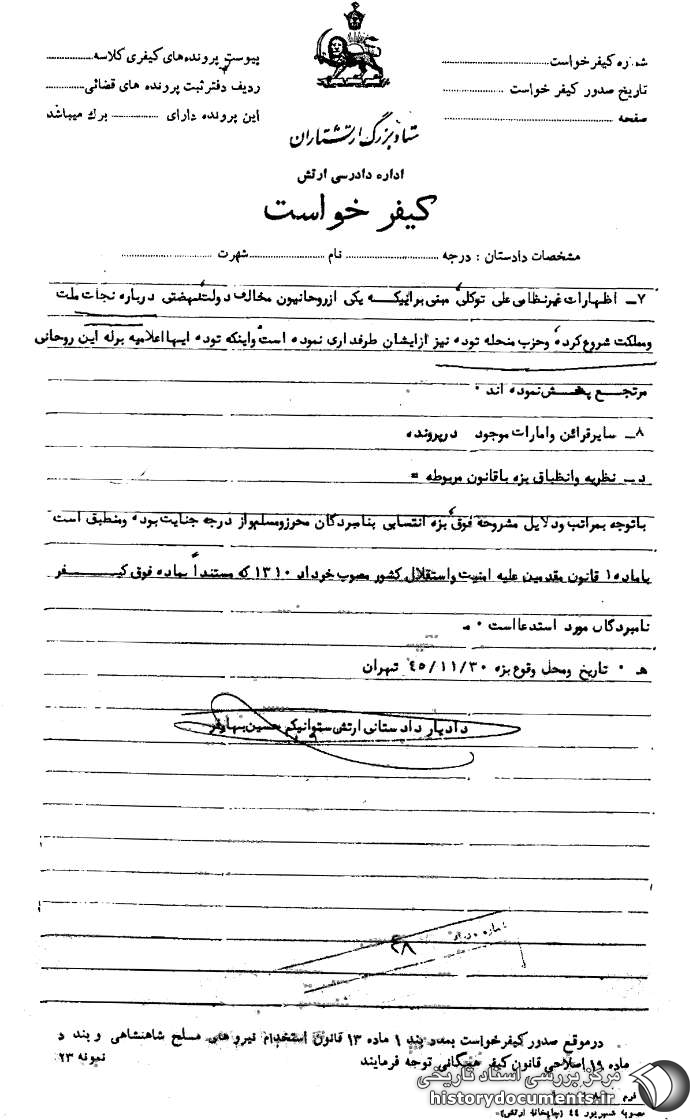 شماره کیفرخواست
تاریخ صدور کیفر خواست
صفحه
پیوست پرونده های کیفری کلاسه
ردیف دفتر ثبت پرونده های قضائی
این پرونده دارای برگ میباشد
ستاد بزرگ ارتشتاران
اداره دادرسی ارتش
کیفر خواست
مشخصات دادستان : درجه نام شهرت
۷ـ اظهارات غیرنظامی علی توکلی مبنی براینکه یکی از روحانیون مخالف دولت نهضتی درباره نجات ملت
ومملکت شروع کرده وحزب منحله توده نیز ازایشان طرفداری نموده است واینکه توده ایها اعلامیه برله این روحانی
مرتجع پخش نموده اند ۰
۸ـ سایر قرائن وامارات موجود درپرونده
د ـ نظریه وانطباق بزه باقانون مربوطه =
باتوجه بمراتب ودلایل مشروحه فوق بزه انتسابی بنامبردگان محرز ومسلم واز درجه جنایت بوده ومنطبق است
باماده ۱ قانون مقدمین علیه امنیت واستقلال کشور مصوب خرداد ۱۳۱۰ که مستنداً بماده فوق کیفر
نامبردگان مورد استدعااست ۰ ـ
هـ ۰ تاریخ ومحل وقوع بزه ۴۵/۱۱/۳۰ تهران
دادیار دادستانی ارتش ستوانیکم حسین
۴۸
درموقع صدور کیفرخواست بمفاد بند ۱ ماده ۱۳ قانون استخدام نیروهای مسلح شاهنشاهی و بند د
ماده ۱۹ اصلاحی قانون کیفر همگانی توجه فرمایند
نمونه ۲۳
مرکز بررسی اسناد تاریخی
historydocuments.ir
فرم
مصوبه شهریور ۴۴ (چاپخانه ارتش)